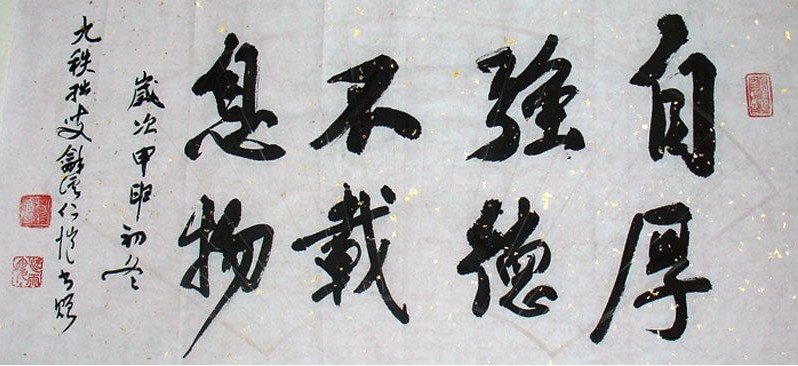 自強不息
厚德載物
歲次甲申初冬
九秩拙叟龢溪仁愷书